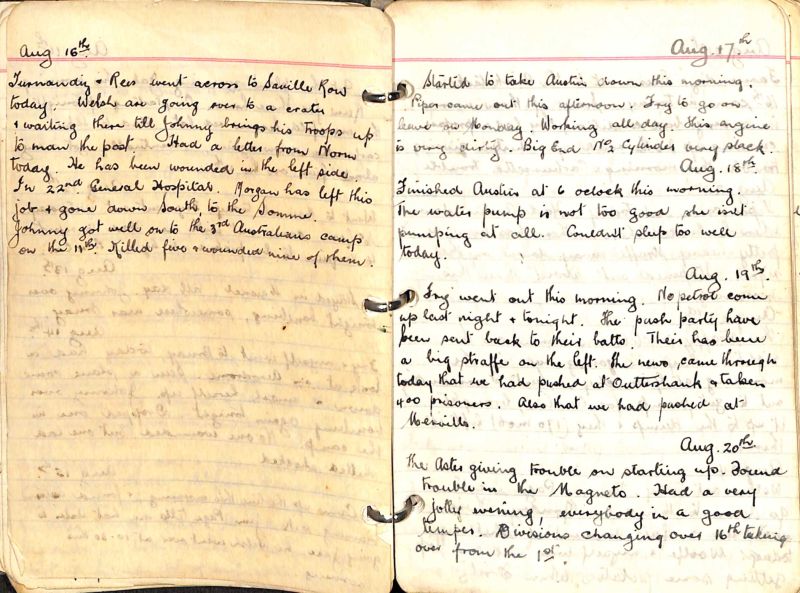 Aug 16th.
Turnandig & Rees went across to Saville Row
today. Welsh are going over to a crater
& waiting there till Johnny brings his troops up
to man the post. Had a letter from Norm
today. He has been wounded in the left side
In 22nd General Hospital. Morgan has left this
job & gone down South to the Somme.
Johnny got well on to the 3rd Australians camp
on the 11th. Killed five & wounded nine of them.
Aug. 17th
Started to take Austin down this morning.
Piper came out this afternoon. Fry to go on
leave on Monday. Working all day. This engine
is very dirty. Big End No 2 Cylinder very slack.
Aug. 18th.
Finished Austin at 6 oclock this morning.
The water pump is not too good she isnt
pumping at all. Couldn't sleep too well
today.
Aug. 19th.
Fry went out this morning. No petrol come
up last night & tonight. The push party have
been sent back to their batts. Their has been
a big straffe on the left. The news came through
today that we had pushed at Outtershank & taken
400 prisoners. Also that we had pushed at
Merville.
Aug. 20th.
The Aster giving trouble on starting up. Found
trouble in the Magneto. Had a very
jolly evening, everybody in a good
temper. Divisions changing over 16th taking
over from the 1st.